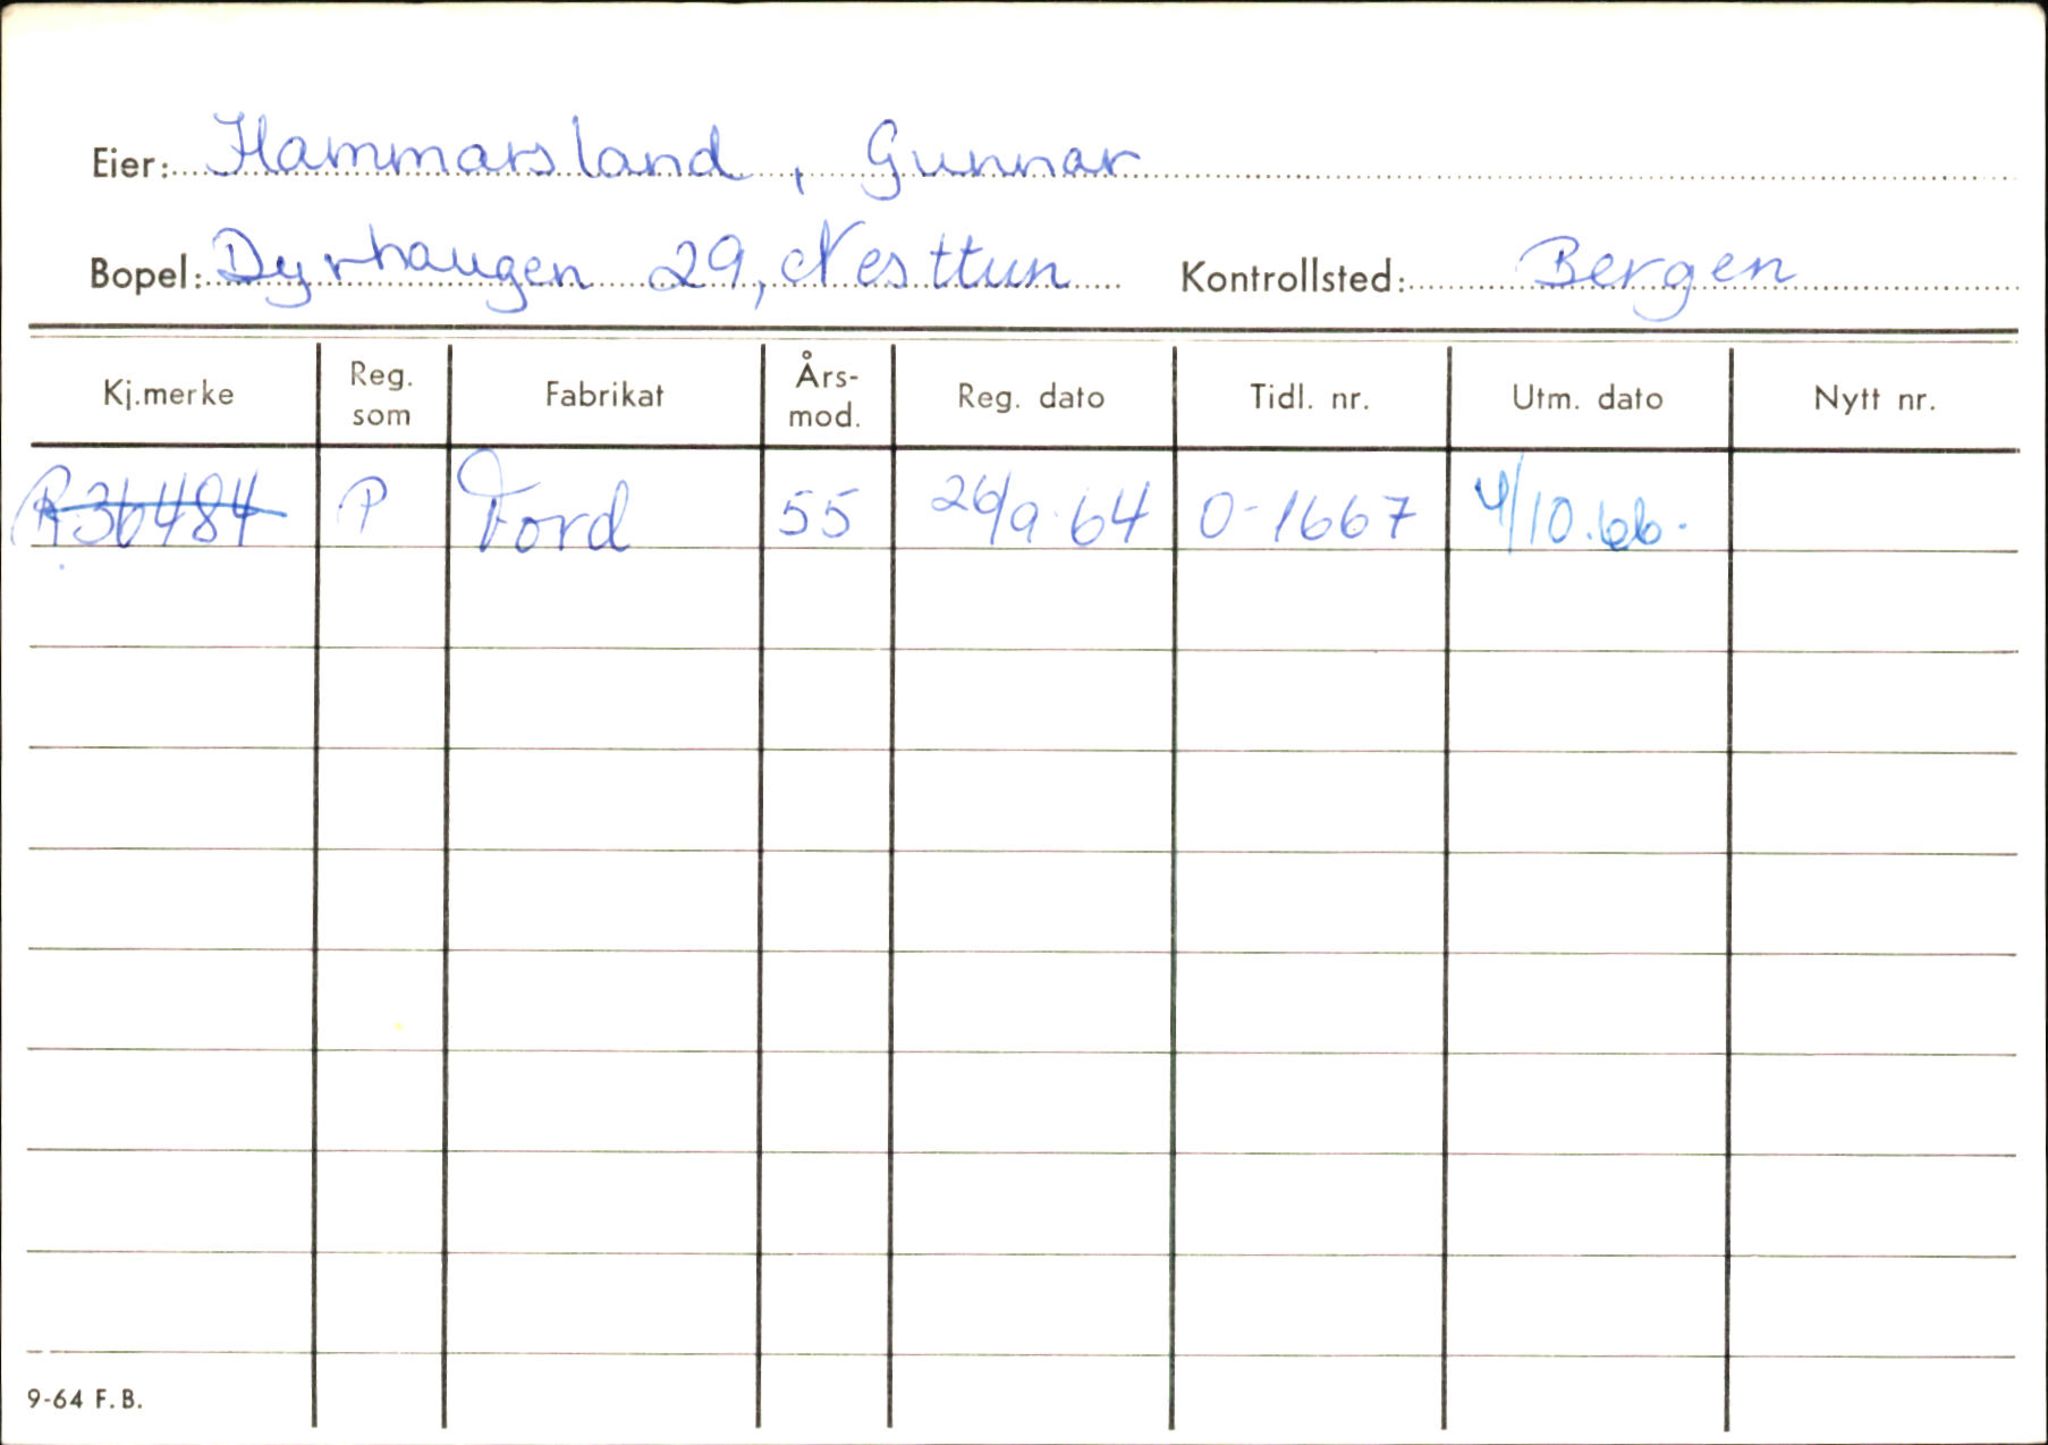 Eier: Hammarsland, Gunnar
Bopel: Dyrhaugen 29, Nesttun Kontrollsted: Bergen
Kj.merke Reg. som Fabrikat Års-mod. Reg. dato Tidl. nr. Utm. dato Nytt nr.
R36484 P Ford 55 26/9.64 O-1667 4/10.66.
9-64 F.B.